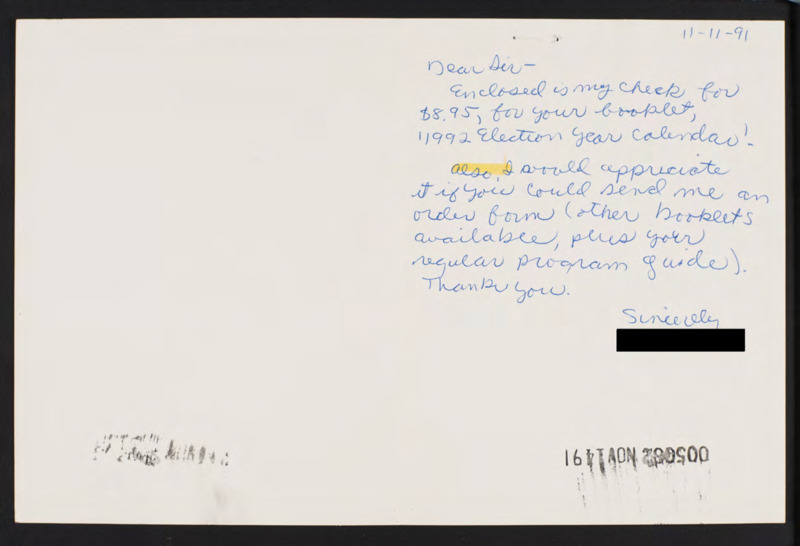 11-11-91
Dear Sir-
Enclosed is my check for
$8.95, for your booklet,
"1992 Election Year Calendar".
also, I would appreciate
it if you could send me an
order form (other booklets
available, plus your
regular program guide).
Thank you.
Sincerely
NOV 14 91